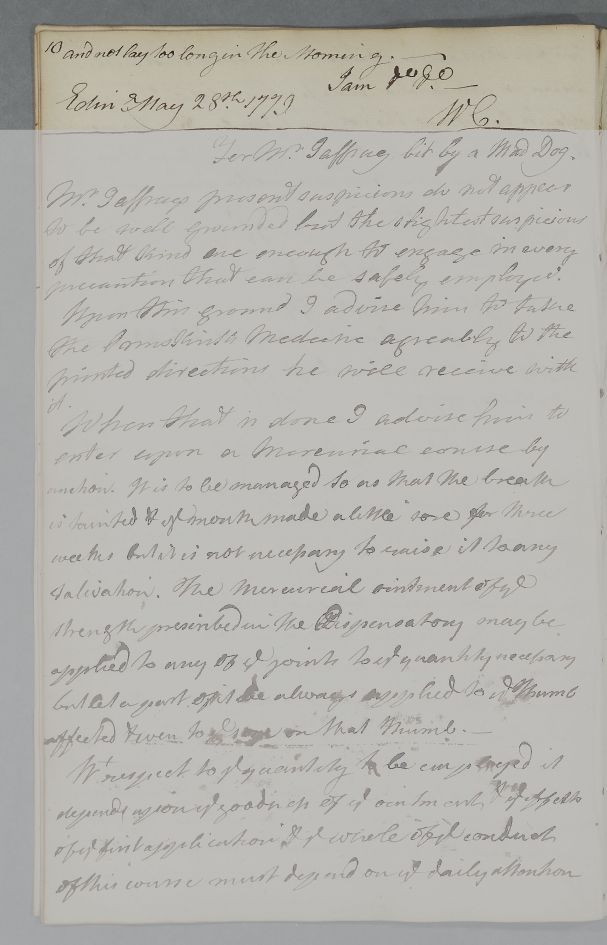 10 and not lay too long in the Morning.
I am
Edinr May 28th 1779
W C.
For Mr. Jaffray bit by a Mad Dog.
Mr. Jaffrays present suspicions do not appear
to be well grounded but the slightest suspicions
of that kind are enough to engage in every
precaution that can be safely employed.
Upon this ground I advise him to take
the Ormskirk Medicine agreeably to the
printed directions he will receive with
it.
When that is done I advise him to
enter upon a Mercurial course by
unction. It is to be managed so as that the breath
is tainted & ye mouth made a little sore for three
weeks but it is not necessary to raise it to any
Salivation. The Mercurial ointment of ye
strength prescribed in the Dispensatory may be
applied to any of ye joints to ye quantity necessary
but let a part of it be always applied to ye Thumb
affected & even to ye on that thumb.
Wt respect to ye quantity to be employed it
depends upon ye goodness of ye ointment & ye effects
of ye first application & ye whole of ye conduct
of this course must depend on ye daily attention